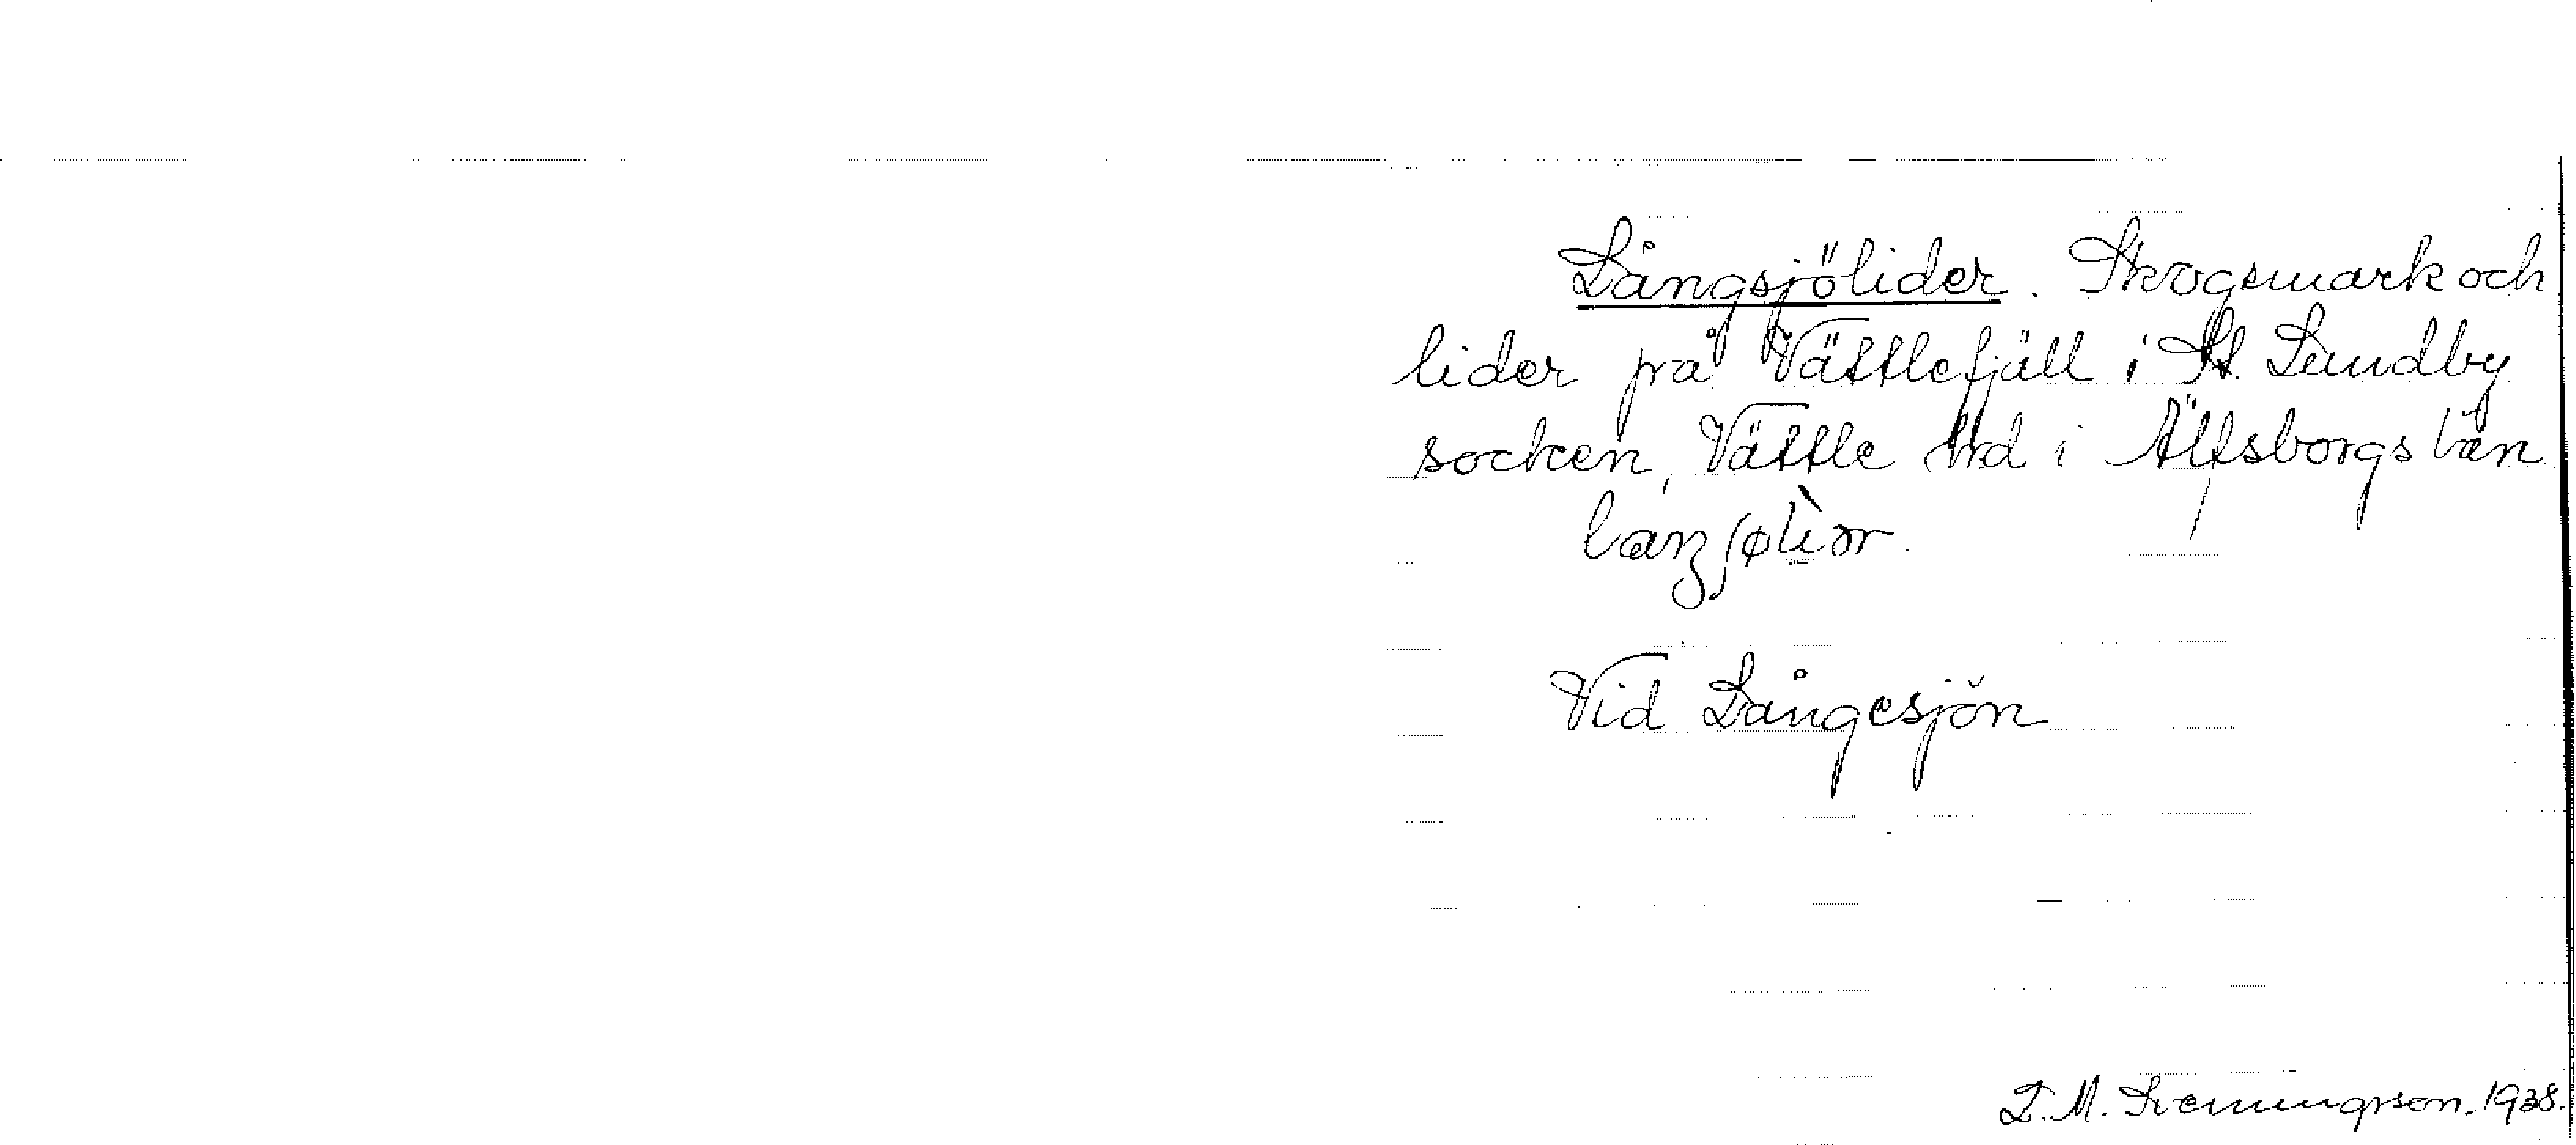 Långsjölider. Skogsmark och
lider på Vättlefjäll i St. Lundby
socken, Vättle hd i Älfsborgs län
Vid Långesjön
1938.